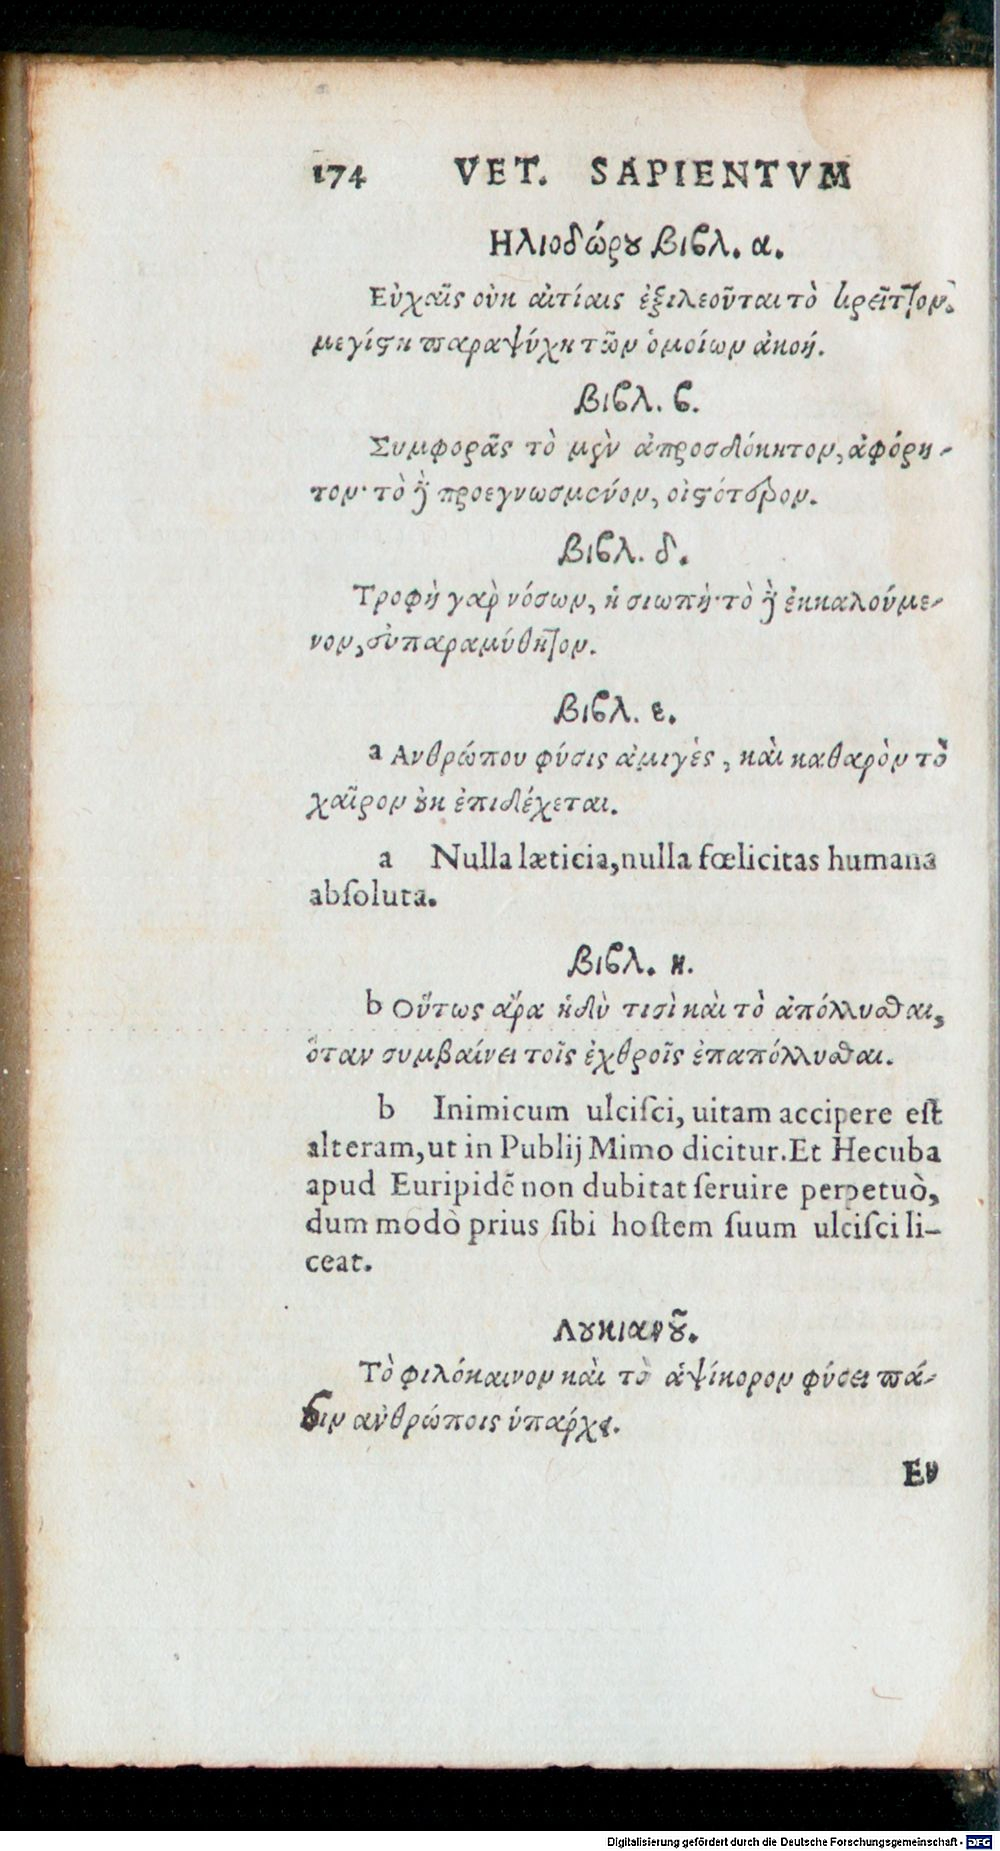 174 VET. SAPIENTVM
Ηλιοδώρου βιβλ. α.
Εὐχαῖς οὐκ αἰτίαις ἐξιλεοῦται τὸ κρεῖττον.
μεγίστη παραψύχη τῶν ὁμοίων ἀκοή.
βιβλ. β.
Συμφορᾶς τὸ μὲν ἀπροσδόκητον, ἀφόρη-
τον· τὸ δὲ προεγνωσμένον, οἰστότερον.
βιβλ. δ.
Τροφὴ γὰρ νόσων, ἡ σιωπή· τὸ δὲ ἐκκαλούμε-
νον, εὐπαραμύθητον.
βιβλ. ε.
a Ανθρώπου φύσις ἀμιγὲς, καὶ καθαρὸν τὸ
χαῖρον οὐκ ἐπιδέχεται.
a Nulla læticia, nulla fœlicitas humana
absoluta.
βιβλ. η.
b Οὕτως ἄρα ἡδύ τισὶ καὶ τὸ ἀπόλλυσθαι,
ὅταν συμβαίνει τοῖς ἐχθροῖς ἐπαπόλλυσθαι.
b Inimicum ulcisci, uitam accipere est
alteram, ut in Publij Mimo dicitur. Et Hecuba
apud Euripidē non dubitat seruire perpetuò,
dum modò prius sibi hostem suum ulcisci li-
ceat.
Λουκιανοῦ.
Τὸ φιλόκαινον καὶ τὸ ἁψίκορον φύσει πά-
σιν ἀνθρώποις ὑπάρχει.
Εν
Digitalisierung gefördert durch die Deutsche Forschungsgemeinschaft - DFG